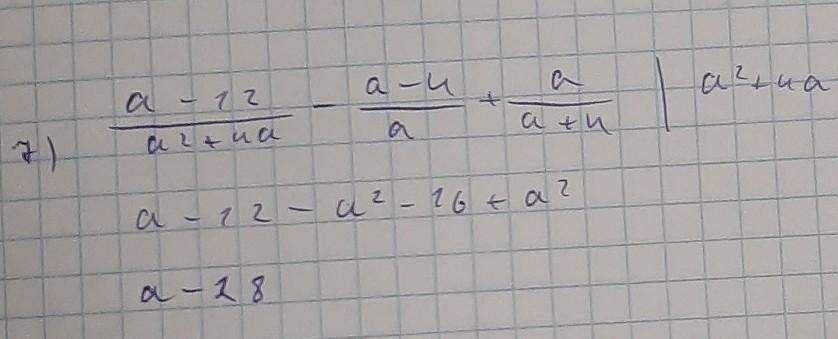 7) \frac{a-12}{a^2+4a} - \frac{a-4}{a} + \frac{a}{a+4} | a^2+4a
a-12-a^2-16+a^2
a-28